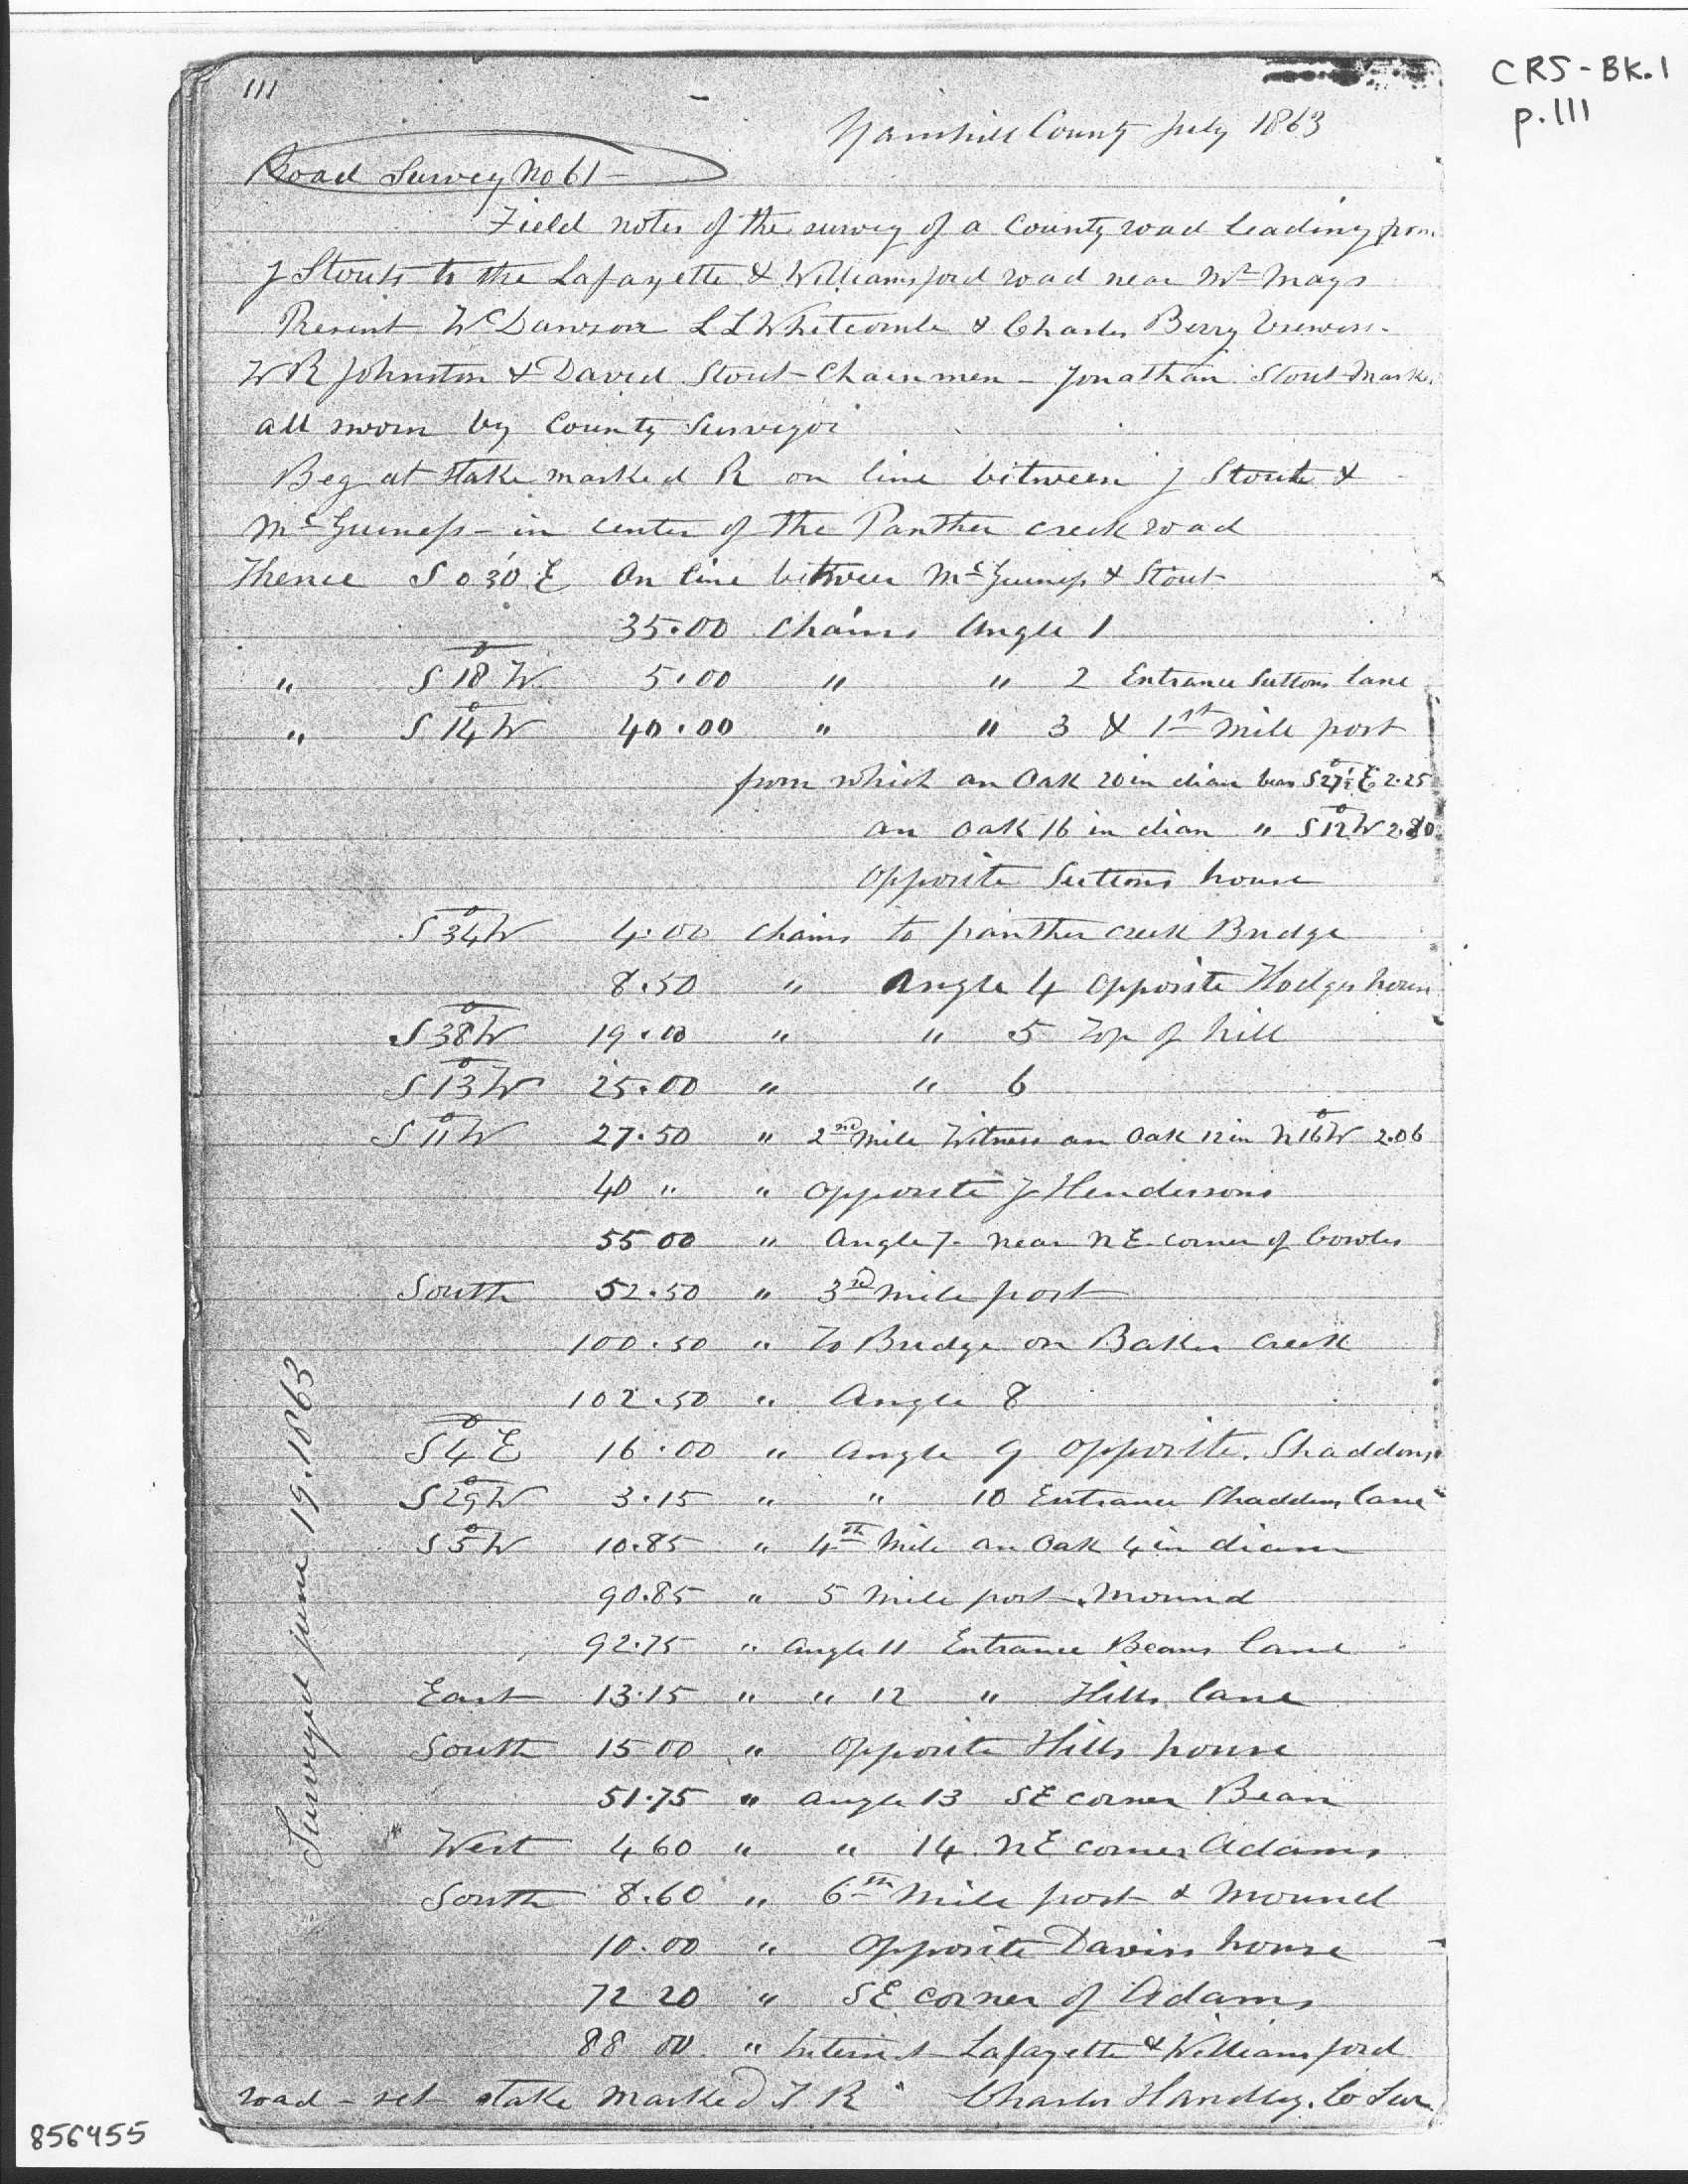 CRS-BK.1
p.111
111
Yamhill County July 1863
Road Survey No 61 -
Field notes of the survey of a County road leading from
J Stouts to the Lafayette & Williamsford road near Mr Mays
Present Wc Dawson L L Whitcomb & Charles Berry Viewers-
W R Johnston & David Stout Chainmen - Jonathan Stout Marker
all sworn by County Surveyor
Beg at stake marked R on line between J Stouts &
McGuiness - in center of the Panther creek road
Thence S 0°30' E On line between McGuiness & Stout
35.00 Chains Angle 1
" S 18° W 5.00 " " 2 Entrance Suttons lane
" S 14° W 40.00 " " 3 & 1st Mile post
from which an Oak 20 in diam bears S 27½° E 2.25
an Oak 16 in diam " S 12° W 2.80
opposite Suttons house
S 34° W 4.00 Chains to panther creek Bridge
8.50 " Angle 4 opposite Hodges house
S 38° W 19.00 " " 5 Top of hill
S 13° W 25.00 " " 6
S 11° W 27.50 " 2nd Mile Witness an Oak 12 in N 16° W 2.06
40 " " opposite J Hendersons
55 00 " Angle 7 - near N E corner of Cowles
South 52.50 " 3rd Mile post
100.50 " To Bridge on Baker Creek
102.50 " Angle 8
S 4° E 16.00 " Angle 9 opposite Shaddens
S 29° W 3.15 " " 10 Entrance Shaddens lane
S 5° W 10.85 " 4th Mile an Oak 4 in diam
90.85 " 5 Mile post. Mound
92.75 " Angle 11 Entrance Beans lane
East 13.15 " " 12 " Hills lane
South 15 00 " opposite Hills house
51.75 " Angle 13 S E corner Bean
West 4 60 " " 14 N E corner Adams
South 8.60 " 6th Mile post & Mound
10.00 " opposite Davis house
72 20 " S E corner of Adams
88 00 " Intersect Lafayette & Williamsford
road - set stake marked T R Charles Handley. Co Sur
Surveyed June 19. 1863
856455